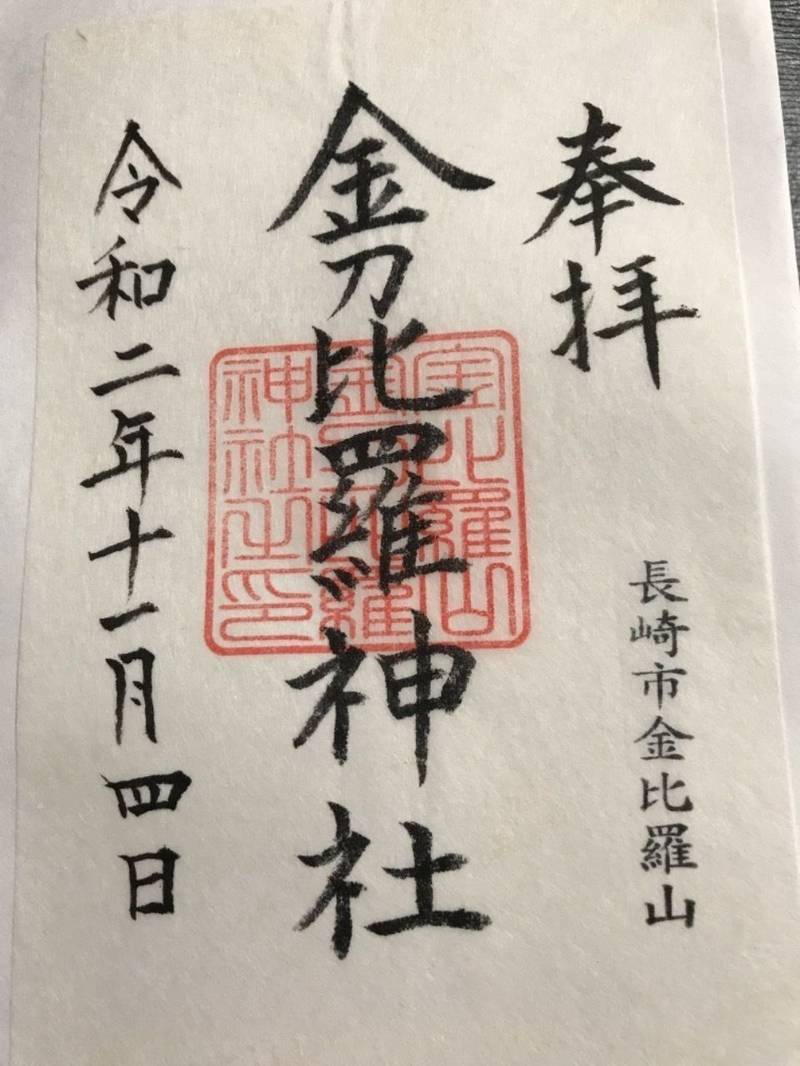 奉拝
長崎市金比羅山
金刀比羅神社
金刀比羅
神社之印
令和二年十一月四日